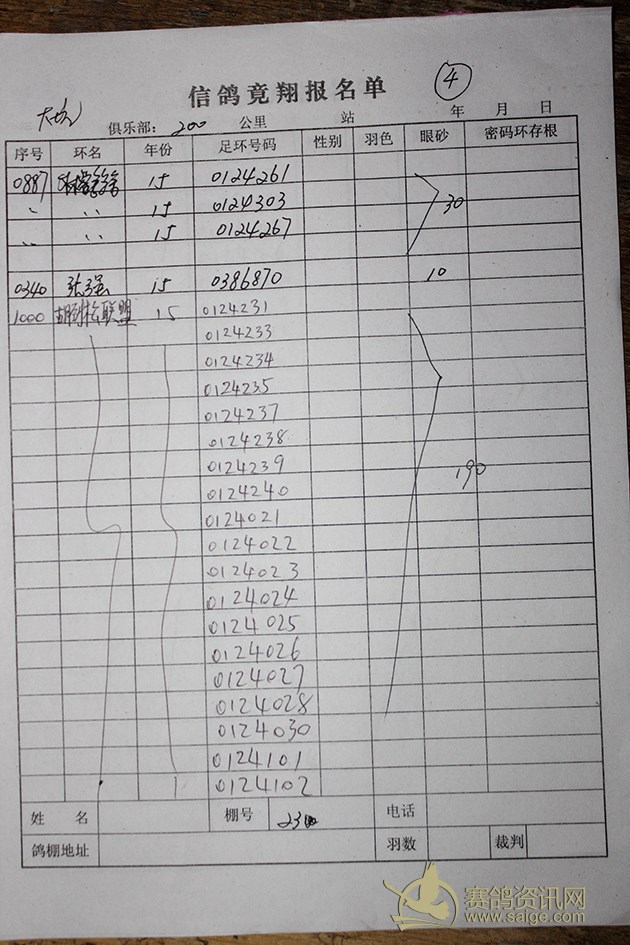 信鸽竟翔报名单 ④
俱乐部： 200 公里 站 年 月 日
序号 环名 年份 足环号码 性别 羽色 眼砂 密码环存根
0887 15 0124261
〃 〃 15 0124303 30
〃 〃 15 0124267
0340 张强 15 0386870 10
1000 联盟 15 0124231
0124233
0124234
0124235
0124237
0124238
0124239 190
0124240
0124021
0124022
0124023
0124024
0124025
0124026
0124027
0124028
0124030
0124101
0124102
姓 名 棚号 电话
鸽棚地址 羽数 裁判
赛鸽资讯网
www.saige.com